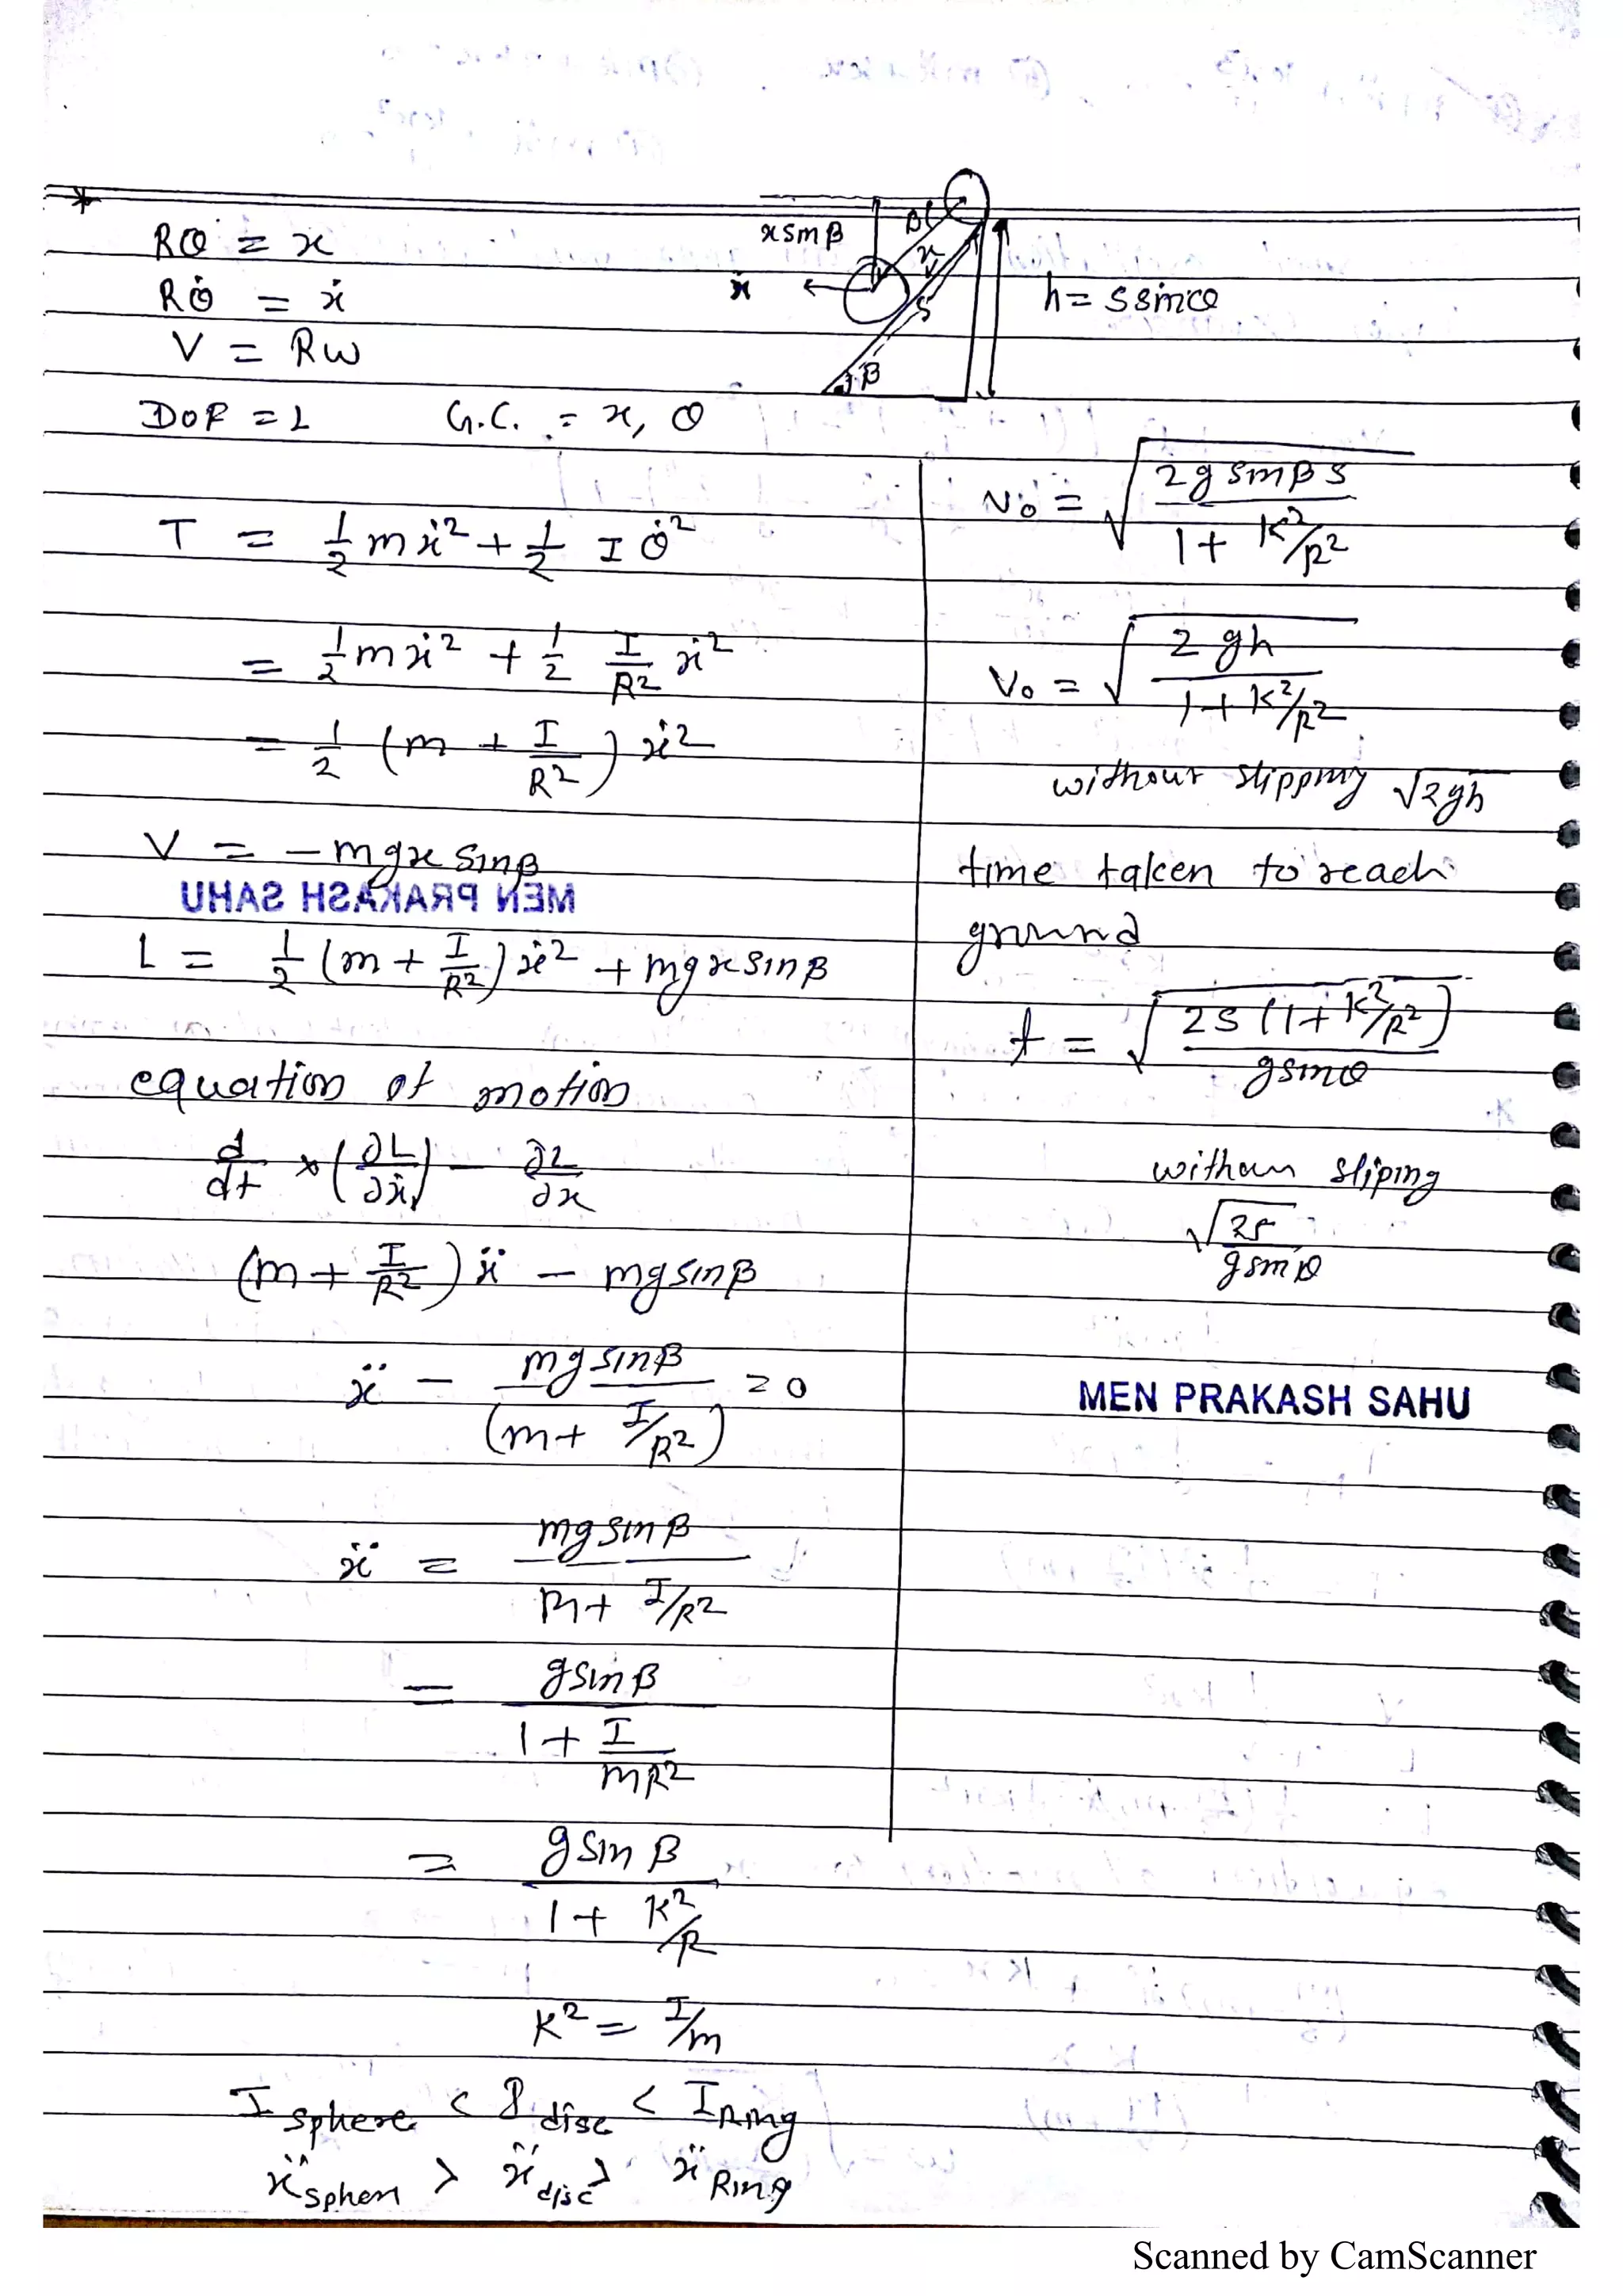 Rθ = x
Rθ̇ = ẋ
V = Rω
x sinβ
β
x
ẋ
S
β
h = s sinθ
DOF = 1 G.C. = x, θ
T = 1/2 mẋ² + 1/2 I θ̇²
= 1/2 mẋ² + 1/2 I/R² ẋ²
= 1/2 (m + I/R²) ẋ²
V = −mgx sinβ
MEN PRAKASH SAHU
L = 1/2 (m + I/R²) ẋ² + mgx sinβ
equation of motion
d/dt × (∂L/∂ẋ) − ∂L/∂x
(m + I/R²) ẍ − mg sinβ
ẍ − mg sinβ/(m + I/R²) = 0
ẍ = mg sinβ/m + I/R²
= g sinβ/1 + I/mR²
= g sinβ/1 + K²/R
K² = I/m
I sphere < I disc < I Ring
ẍ sphen > ẍ disc > ẍ Ring
V₀ = √2g sinβ s/1 + K²/R²
V₀ = √2gh/1 + K²/R²
without slipping √2gh
time taken to reach
ground
t = √2s (1 + K²/R²)/g sinθ
without sliping
√2s/g sinθ
MEN PRAKASH SAHU
Scanned by CamScanner